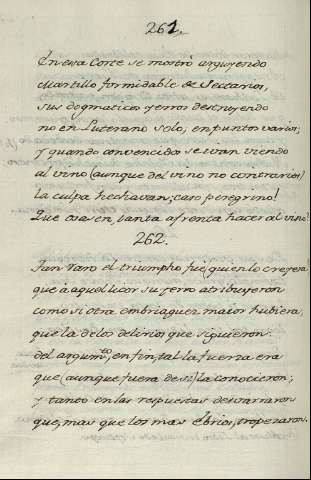 261.
En essa Corte se mostró arguyendo
Martillo formidable de Sectarios,
sus dogmaticos yerros destruyendo
no en Luterano solo, en puntos varios;
y quando convencidos se ivan viendo
al vino (aunque del vino no contrarios)
la culpa hechavan; caso peregrino!
Que osasen, tanta afrenta hacer al vino!
262.
Tan raro el triumpho fué, quien lo creyera!
que á aquel licor su yerro atribuyeron
como si otra embriaguez maior hubiera,
que la de los delirios que siguieron.
del argumto, en fin, tal la fuerza era
que (aunque fuera de si) la conocieron;
y tanto en las respuestas desvariaron
que, mas que los mas ébrios, tropezaron.